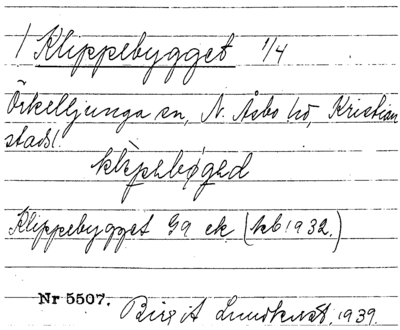 / Klippebygget 1/4
Örkelljunga sn, N. Åsbo hd, Kristian
stads l.
klepebøged
Klippebygget Ga ek (kb 1932.)
Nr 5507.
Birgit Lundkvist, 1939.